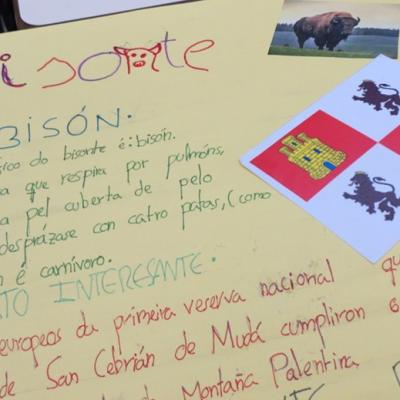 isonte
BISÓN.
do bisonte é: bisón.
que respira por pulmóns,
pel cuberta de pelo
desprázase con catro patas, (como
é carnívoro.
INTERESANTE.
europeos da primeira reserva nacional
de San Cebrián de Mudá cumpliron 6
Montaña Palentina